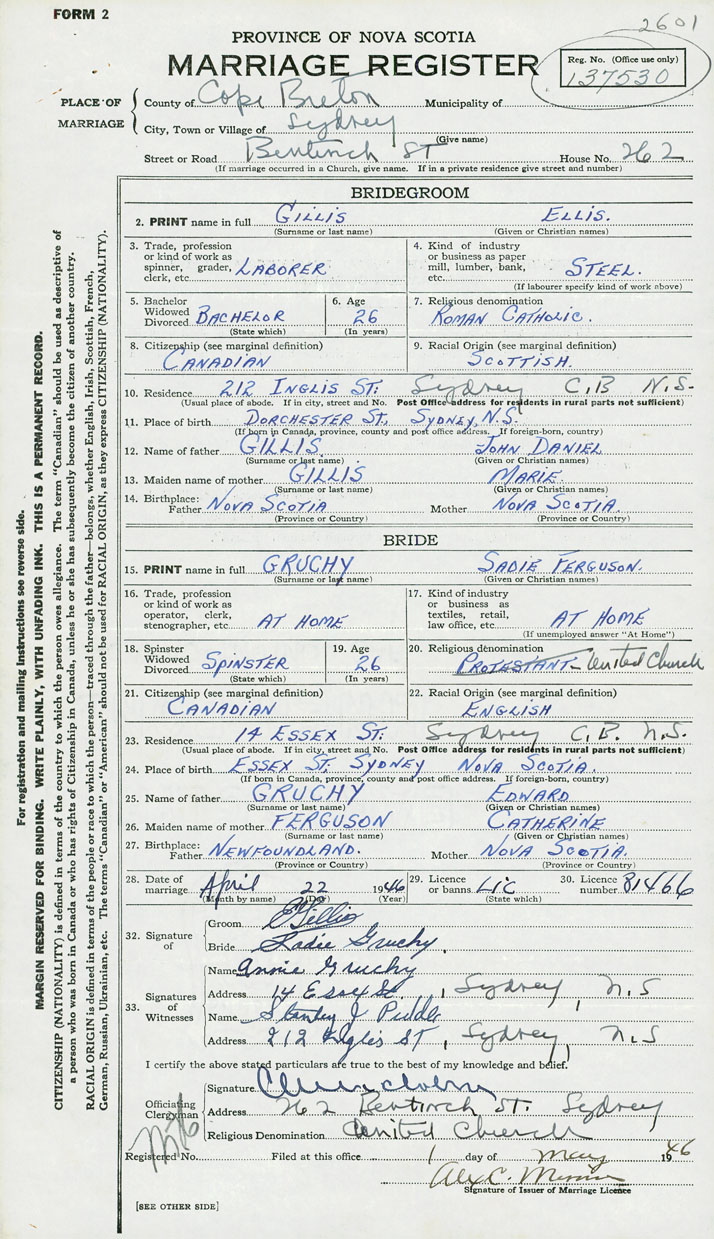 FORM 2
2601
PROVINCE OF NOVA SCOTIA
MARRIAGE REGISTER
Reg. No. (Office use only)
137530
PLACE OF MARRIAGE
County of Cape Breton Municipality of
City, Town or Village of Sydney
(Give name)
Street or Road Bentinch ST House No. 262
(If marriage occurred in a Church, give name. If in a private residence give street and number)
BRIDEGROOM
2. PRINT name in full GILLIS ELLIS.
(Surname or last name) (Given or Christian names)
3. Trade, profession or kind of work as spinner, grader, clerk, etc. LABORER
4. Kind of industry or business as paper mill, lumber, bank, etc. STEEL.
(If labourer specify kind of work above)
5. Bachelor Widowed Divorced BACHELOR
(State which)
6. Age 26
(In years)
7. Religious denomination
ROMAN CATHOLIC.
8. Citizenship (see marginal definition)
CANADIAN
9. Racial Origin (see marginal definition)
SCOTTISH.
10. Residence 212 INGLIS ST. Sydney C.B N.S.
(Usual place of abode. If in city, street and No. Post Office address for residents in rural parts not sufficient)
11. Place of birth DORCHESTER ST, SYDNEY, N.S.
(If born in Canada, province, county and post office address. If foreign-born, country)
12. Name of father GILLIS. JOHN DANIEL
(Surname or last name) (Given or Christian names)
13. Maiden name of mother GILLIS MARIE.
(Surname or last name) (Given or Christian names)
14. Birthplace: Father NOVA SCOTIA Mother NOVA SCOTIA
(Province or Country) (Province or Country)
BRIDE
15. PRINT name in full GRUCHY SADIE FERGUSON.
(Surname or last name) (Given or Christian names)
16. Trade, profession or kind of work as operator, clerk, stenographer, etc. AT HOME
17. Kind of industry or business as textiles, retail, law office, etc. AT HOME
(If unemployed answer "At Home")
18. Spinster Widowed Divorced SPINSTER
(State which)
19. Age 26
(In years)
20. Religious denomination
PROTESTANT - United Church
21. Citizenship (see marginal definition)
CANADIAN
22. Racial Origin (see marginal definition)
ENGLISH
23. Residence 14 ESSEX ST. Sydney C.B. N.S.
(Usual place of abode. If in city, street and No. Post Office address for residents in rural parts not sufficient)
24. Place of birth ESSEX ST. SYDNEY NOVA SCOTIA.
(If born in Canada, province, county and post office address. If foreign-born, country)
25. Name of father GRUCHY EDWARD
(Surname or last name) (Given or Christian names)
26. Maiden name of mother FERGUSON CATHERINE
(Surname or last name) (Given or Christian names)
27. Birthplace: Father NEWFOUNDLAND. Mother NOVA SCOTIA.
(Province or Country) (Province or Country)
28. Date of marriage April 22 1946
(Month by name) (Day) (Year)
29. Licence or banns. Lic
(State which)
30. Licence number 81466
32. Signature of
Groom E Gillis
Bride Sadie Gruchy
33. Signatures of Witnesses
Name Annie Gruchy
Address 14 Essex St, Sydney, N.S
Name Stanley J
Address 212 Inglis ST, Sydney, N.S
I certify the above stated particulars are true to the best of my knowledge and belief.
Officiating Clergyman
Signature
Address 262 Bentinch ST. Sydney
Religious Denomination United Church
Registered No. Filed at this office 1 day of May 1946
Alex C.
Signature of Issuer of Marriage Licence
[SEE OTHER SIDE]
For registration and mailing instructions see reverse side.
MARGIN RESERVED FOR BINDING. WRITE PLAINLY, WITH UNFADING INK. THIS IS A PERMANENT RECORD.
CITIZENSHIP (NATIONALITY) is defined in terms of the country to which the person owes allegiance. The term "Canadian" should be used as descriptive of
a person who was born in Canada or who has rights of Citizenship in Canada, unless he or she has subsequently become the citizen of another country.
RACIAL ORIGIN is defined in terms of the people or race to which the person—traced through the father—belongs, whether English, Irish, Scottish, French,
German, Russian, Ukrainian, etc. The terms "Canadian" or "American" should not be used for RACIAL ORIGIN, as they express CITIZENSHIP (NATIONALITY).